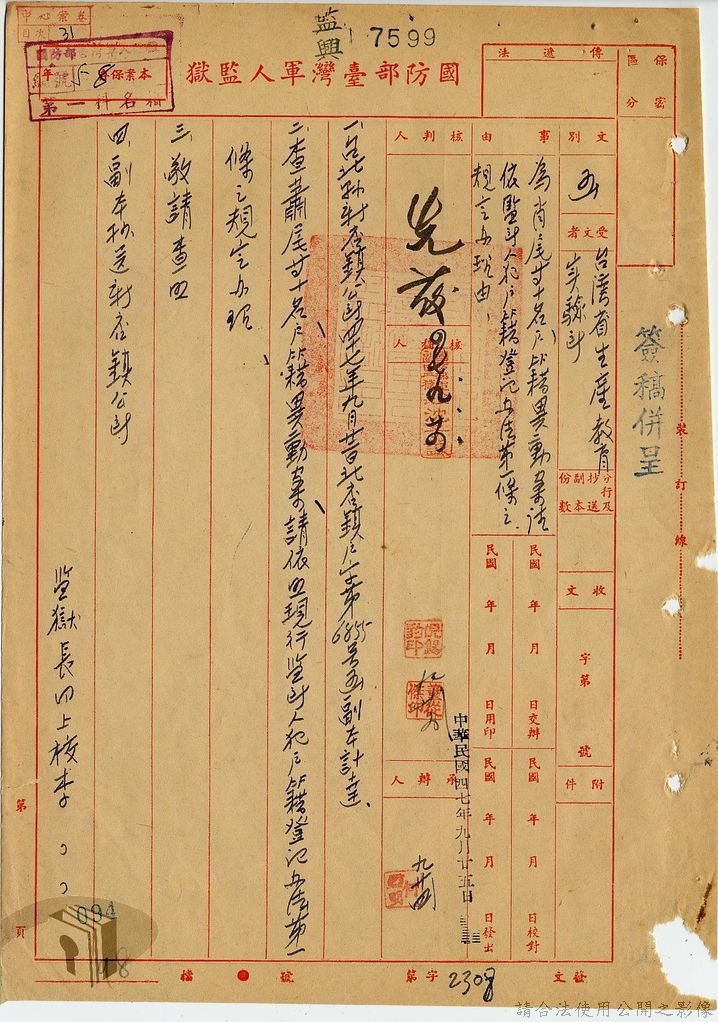 監興 7599
國防部臺灣軍人監獄
中心案卷
目次 31
國防部
本案保
年 58
第一科名稱
法遞傳
保密
區分
簽稿併呈
裝
訂
線
文別
函
受文者
台灣省生產教育
實驗所
分行及
抄送
副本
份數
收文
字第
號
附件
事由
為肖尾寸十名戶籍異動案請
依監所人犯戶籍登記办法第一條之
規定办理由
民國 年 月 日交辦
民國 年 月 日校對
民國 年 月 日用印
民國 年 月 日發出
中華民國四七年九月廿五日
核判人
先發
核稿人
承辦人
九廿四
一、台北縣新店鎮公所四十七年九月廿二日北店鎮戶字第6855號函副本計達
二、查蕭尾寸十名戶籍異動案請依照現行監所人犯戶籍登記办法第一
條之規定办理
三、敬請查照
四、副本抄送新店鎮公所
監獄長 上校李
第
頁
094
檔
號
發文
字第 2308
請合法使用公開之影像